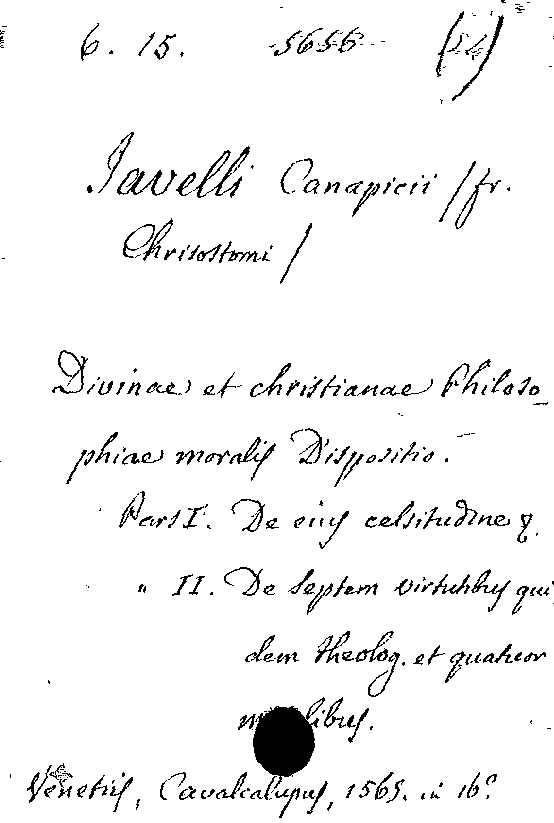 6. 15. 5656 (54)
Javelli Canapicii /fr.
Chrisostomi /
Divinae et christianae Philoso-
phiae moralis Dispositio.
Pars I. De eius celsitudine &.
" II. De Septem virtutibus qui
dem theolog. et quatuor
libus.
Venetiis, Cavalcalupus, 1565. in 16°